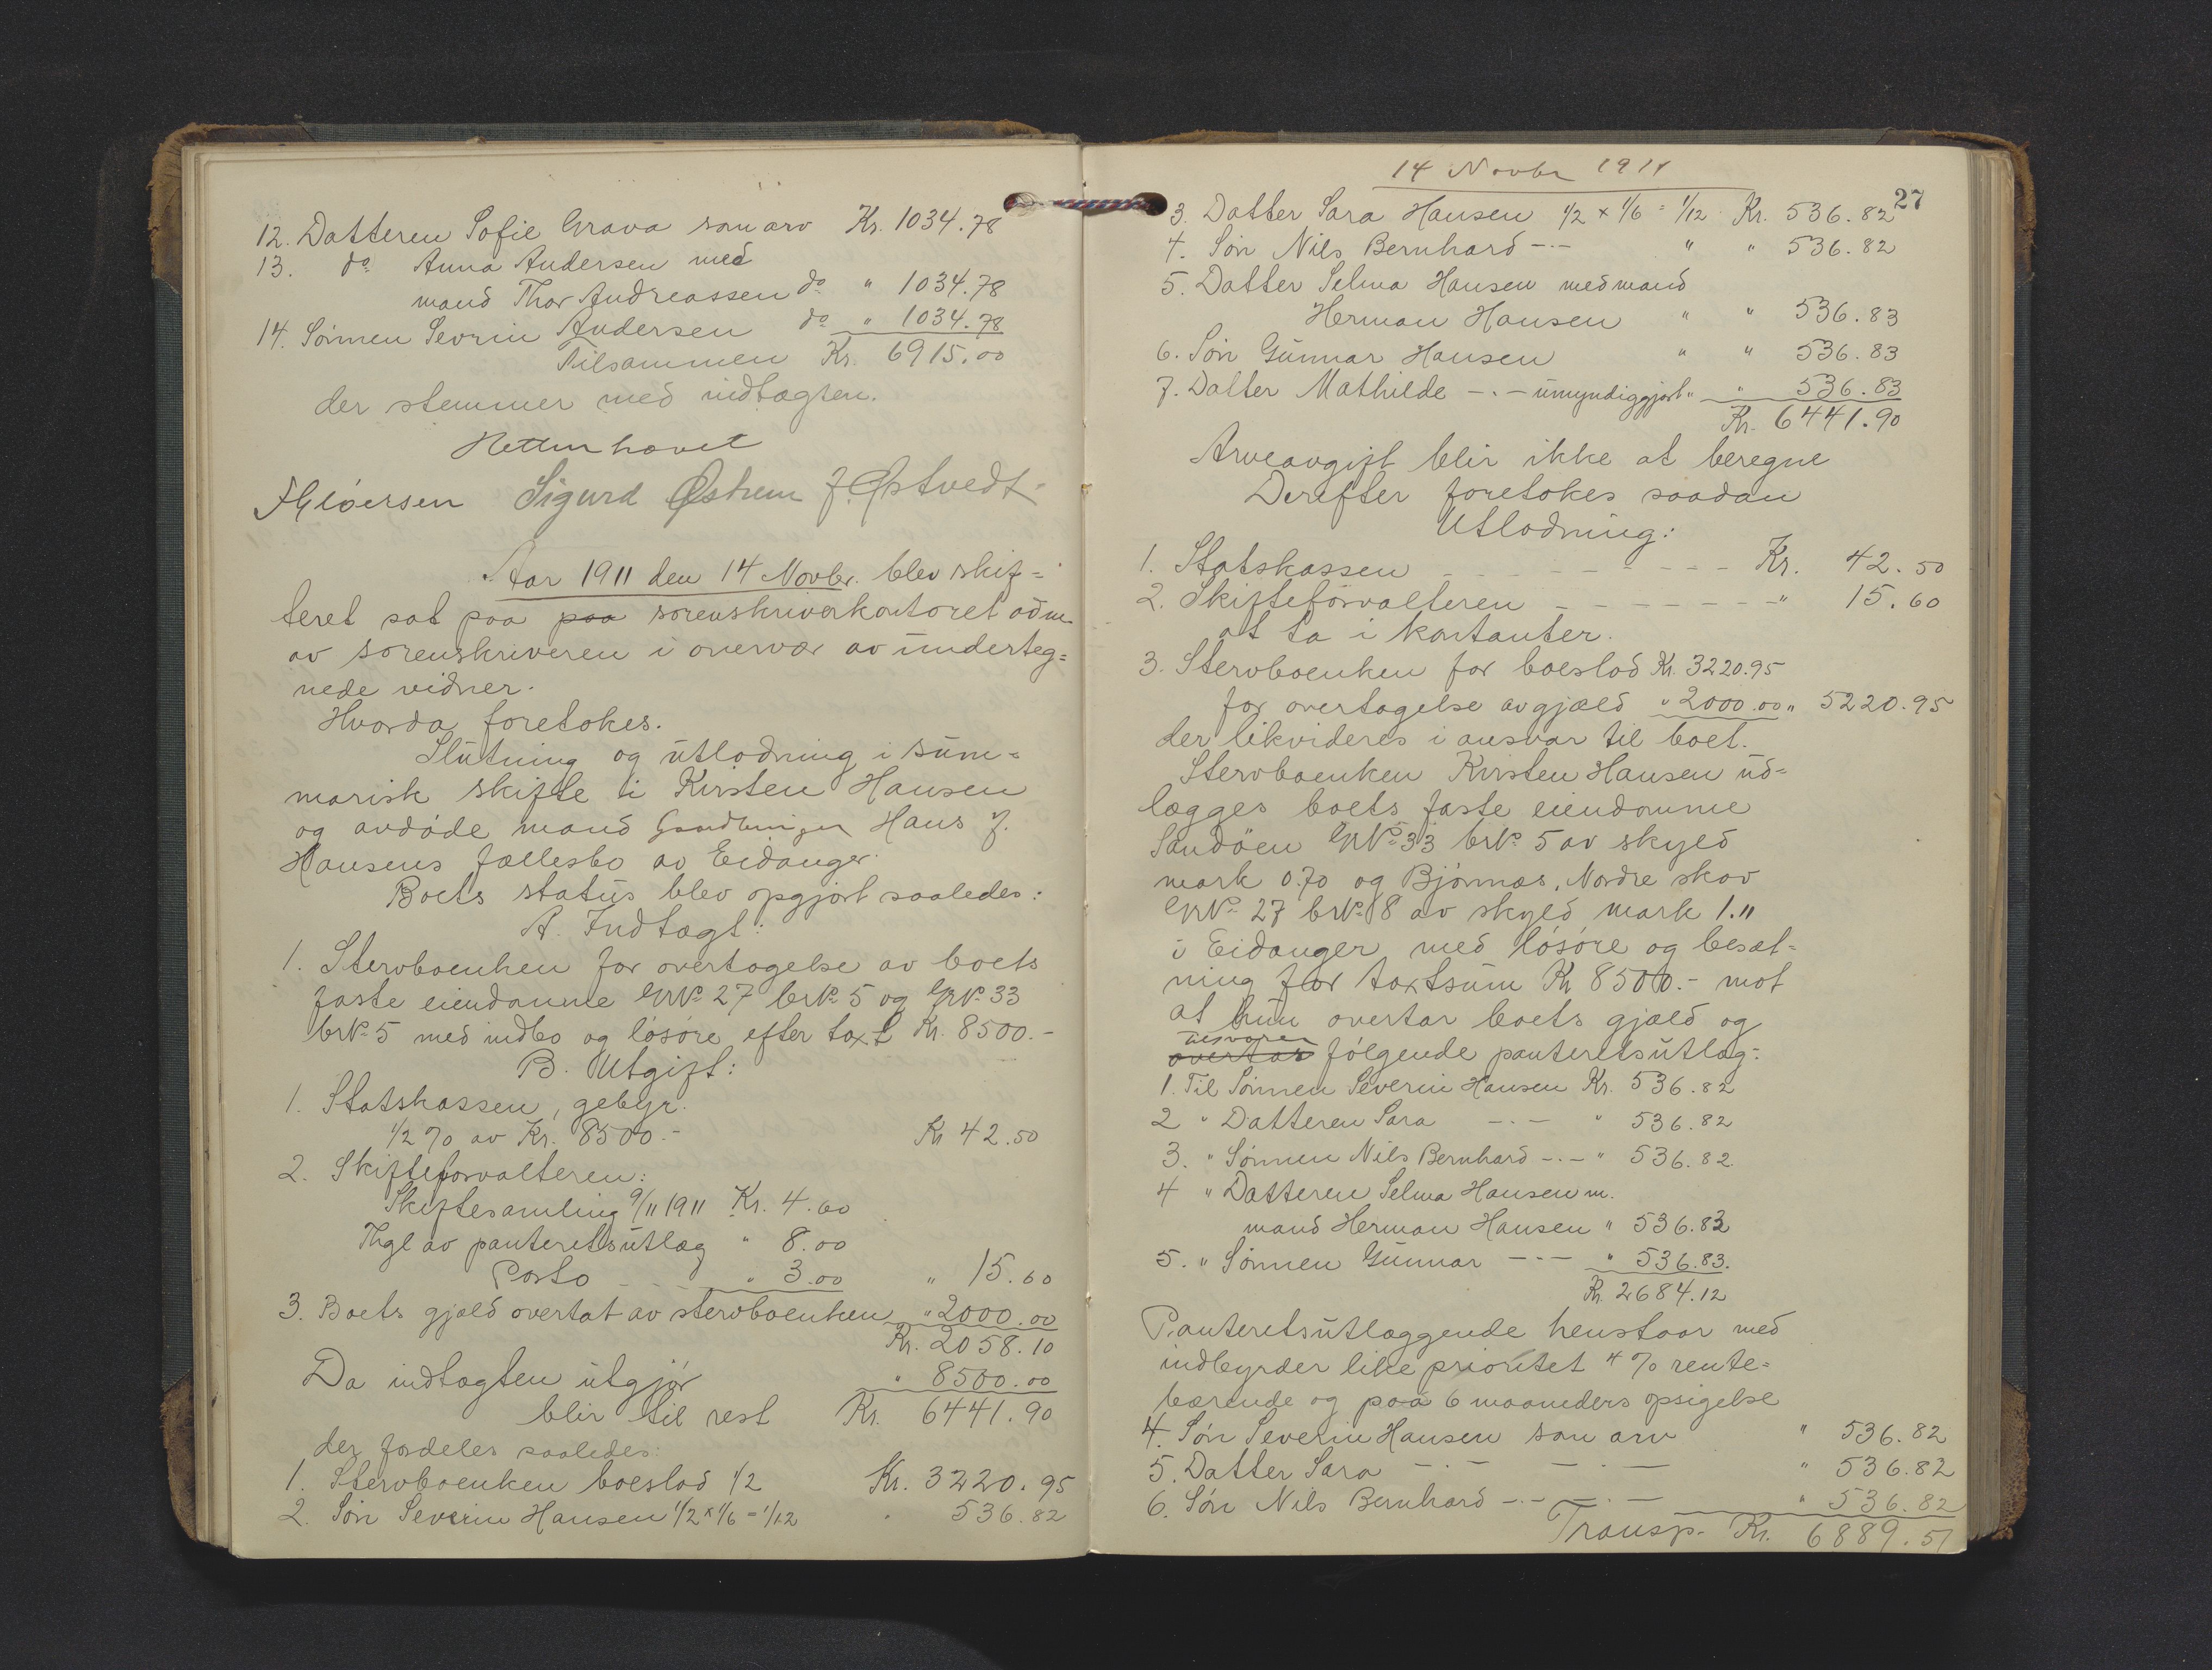 12. Datteren Sofie Grava som arv Kr. 1034.78
13. do Anna Andersen med
mand Thor Andreassen do " 1034.78
14. Sønnen Sevrin Andersen do " 1034.78
Tilsammen Kr. 6915.00
der stemmer med indtægten.
Retten hævet
Sigurd Østrem J. Østvedt
Aar 1911 den 14 Novbr. blev skif=
teret sat paa paa sorenskriverkontoret adm.
av sorenskriveren i overvær av underteg=
nede vidner.
Hvorda foretokes.
Slutning og utlodning i sum=
marisk skifte i Kirsten Hansen
og avdøde mand Gaardbruger Hans J.
Hansens fællesbo av Eidanger.
Boets status blev opgjort saaledes:
A. Indtægt:
1. Stervboenken for overtagelse av boets
faste eiendomme GNo 27 brNo 5 og GNo 33
brNo 5 med indbo og løsøre efter taxt Kr. 8500.-
B. Utgift:
1. Statskassen, gebyr.
1/2 % av Kr. 8500.- Kr 42.50
2. Skifteforvalteren:
Skiftesamling 9/11 1911 Kr. 4.60
Thgl av panteretsutlæg " 8.00
Porto - - - " 3.00 " 15.60
3. Boets gjæld overtat av stervboenken " 2000.00
Kr. 2058.10
Da indtægten utgjør " 8500.00
blir til rest Kr. 6441.90
der fordeles saaledes:
1. Stervboenken boeslod 1/2 Kr. 3220.95
2. Søn Severin Hansen 1/2 x 1/6 = 1/12 " 536.82
14 Novbr 1911
27
3. Datter Sara Hansen 1/2 x 1/6 = 1/12 Kr. 536.82
4. Søn Nils Bernhard -.- " " 536.82
5. Datter Selma Hansen med mand
Herman Hansen " " 536.83
6. Søn Gunnar Hansen " " 536.83
7. Datter Mathilde -.- umyndiggjort " " 536.83
Kr. 6441.90
Arveavgift blir ikke at beregne
Derefter foretokes saadan
Utlodning:
1. Statskassen - - - - - - - - - Kr. 42.50
2. Skifteforvalteren - - - - - - - " 15.60
at ta i kontanter.
3. Stervboenken for boeslod Kr. 3220.95
for overtagelse av gjæld " 2000.00 " 5220.95
der likvideres i ansvar til boet.
Stervboenken Kirsten Hansen ud=
lægges boets faste eiendomme
Sandøen GNo 33 brNo 5 av skyld
mark 0.70 og Bjørnnæs, Nordre skov
GNo 27 brNo 8 av skyld mark 1.11
i Eidanger med løsøre og besæt=
ning for taxtsum Kr 8500.- mot
at hun overtar boets gjæld og
utsvarer
overtar følgende panteretsutlæg:
1. Til Sønnen Severin Hansen Kr. 536.82
2 " Datteren Sara -.- " 536.82
3. " Sønnen Nils Bernhard -.- " 536.82
4 " Datteren Selma Hansen m.
mand Herman Hansen " 536.83
5. " Sønnen Gunnar -.- " 536.83.
Kr. 2684.12
Panteretsutlæggende henstaar med
indbyrdes like prioritet 4 % rente=
bærende og paa 6 maaneders opsigelse
4. Søn Severin Hansen som arv " 536.82
5. Datter Sara -.- -.- " 536.82
6. Søn Nils Bernhard -.- -.- " 536.82
Transp. Kr. 6889.51